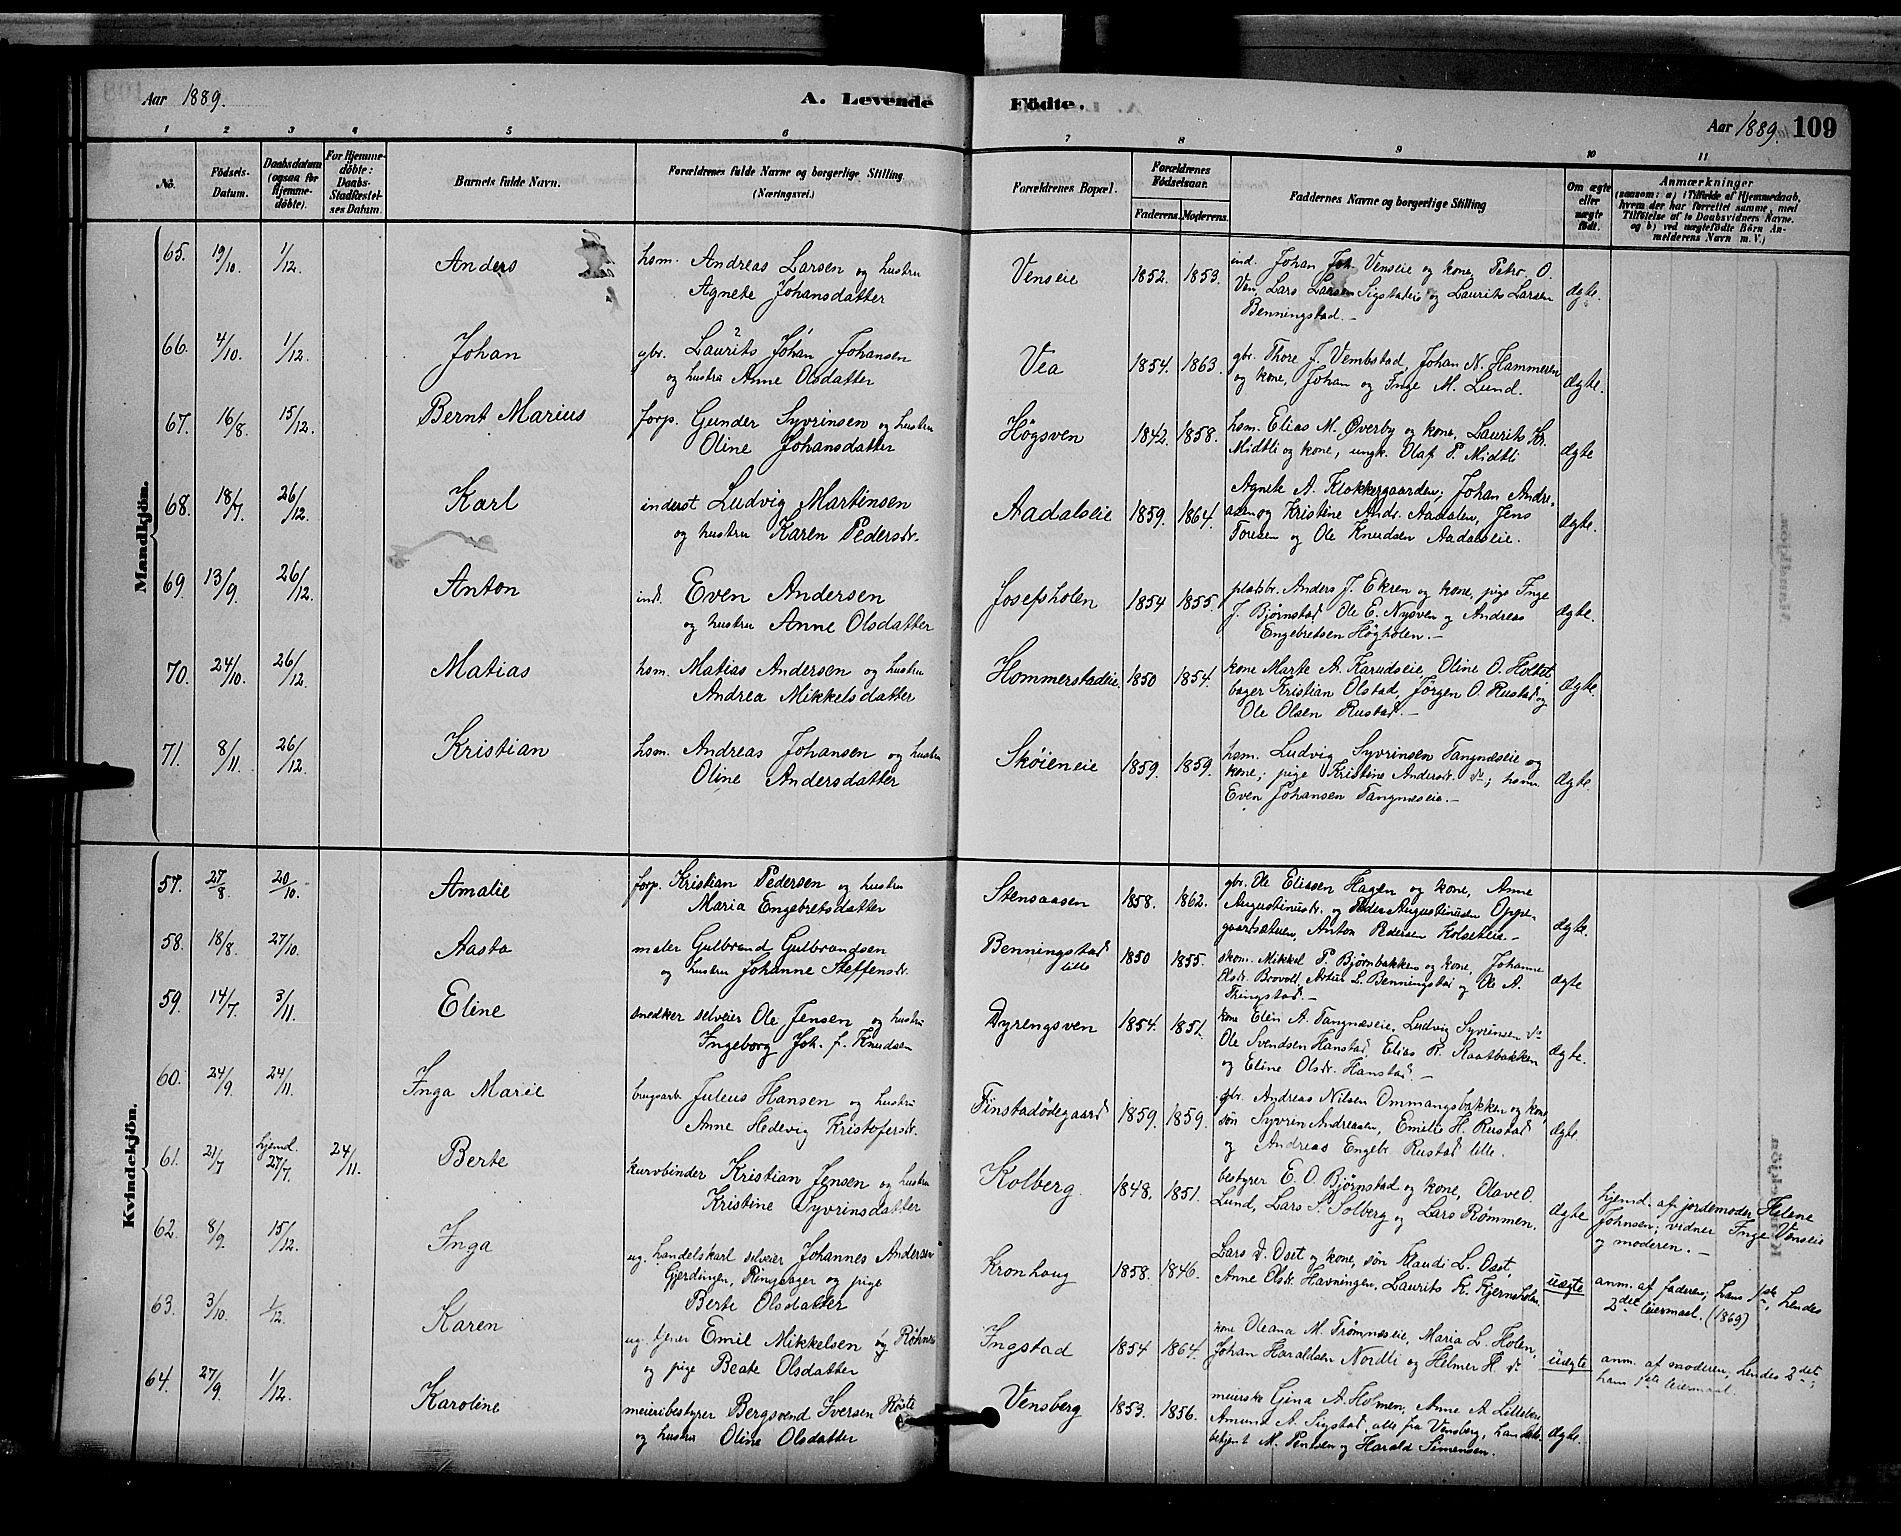 Aar 1889.
A. Levende
Födte.
Aar 1889. 109
1 2 3 4 5 6 7 8 9 10 11
No.
Födsels-
Datum.
Daabsdatum
(ogsaa for
Hjemme-
döbte).
For Hjemme-
döbte:
Daabs-
Stadfæstel-
ses Datum.
Barnets fulde Navn.
Forældrenes fulde Navne og borgerlige Stilling
(Næringsvei.)
Forældrenes Bopæl.
Forældrenes
Födselsaar.
Faderens. Moderens.
Faddernes Navne og borgerlige Stilling
Om ægte
eller
uægte
födt.
Anmærkninger
(saasom: a) i Tilfælde af Hjemmedaab,
hvem der har forrettet samme, med
Tilföielse af to Daabsvidners Navne,
og b) ved uægtefödte Börn An-
melderens Navn m. V.)
Mandkjön.
65. 19/10. 1/12. Anders
hsm. Andreas Larsen og hustru
Agnete Johansdatter
Venseie 1852. 1853.
ind. Johan Joh. Venseie og kone, Petra O.
Ven, Lars Larsen Sigstadeie og Laurits Larsen
Benningstad.
ægte.
66. 4/10. 1/12. Johan
gbr. Laurits Johan Johansen
og hustru Anne Olsdatter
Vea 1854. 1863.
gbr. Thore J. Vembstad, Johan N. Hammeren
og kone, Johan og Inge M. Lund.
ægte.
67. 16/8. 15/12. Bernt Marius
forp. Gunder Syvrinsen og hustru
Oline Johansdatter
Högsven 1842. 1858.
hsm. Elias M. Øverby og kone, Laurits Kr.
Midtli og kone, ungk. Olaf P. Midtli
ægte
68. 18/7. 26/12. Karl
inderst Ludvig Martinsen
og hustru Karen Pedersdr.
Aadalseie 1859. 1864.
Agnete A. Klokkergaarden, Johan Andre-
asen og Kristine Andr. Aadalen, Jens
Toresen og Ole Knudsen Aadalseie.
ægte.
69. 13/9. 26/12. Anton
ind. Even Andersen
og hustru Anne Olsdatter
Josefsholen 1854 1855.
pladsbr. Anders J. Ekren og kone, pige Inge
J. Bjørnstad, Ole E. Nysven og Andreas
Engebretsen Högholen.
ægte.
70. 24/10. 26/12. Matias
hsm. Matias Andersen og hustru
Andrea Mikkelsdatter
Hommerstadeie. 1850 1854.
kone Marte A. Karudseie, Oline O. Holtet
bager Kristian Olstad, Jörgen O. Rustad og
Ole Olsen Rustad.
ægte.
71. 8/11. 26/12. Kristian
hsm. Andreas Johansen og hustru
Oline Andersdatter
Skøieneie 1859. 1859.
hsm. Ludvig Syvrinsen Tangnæseie og
kone; pige Kristine Andersdr. do; hsm.
Even Johansen Tangnæseie.
ægte.
Kvindekjön.
57. 27/8. 20/10. Amalie
forp. Kristian Pedersen og hustru
Maria Engebretsdatter
Stensaasen 1858. 1862.
gbr. Ole Eliasen Hagen og kone, Anne
Augustinusdr. og Peder Augustinusen Oppe-
gaardsætuen, Anton Pedersen Kolseteie.
ægte.
58. 18/8. 27/10. Aasta
maler Gulbrand Gulbrandsen
og hustru Johanne Steffensdr.
Benningstad
lille 1850 1855.
skom. Mikkel P. Bjørnbakken og kone, Johanne
Olsdr. Brovold, L. Benningstad og Ole A.
Tringstad.
ægte
59. 14/7. 3/11. Eline
snedker selveier Ole Jensen og hustru
Ingeborg Joh. f. Knudsen
Dyrengsven 1854. 1851.
kone Elin A. Tangnæseie, Ludvig Syvrinsen do
Ole Svendsen Hanstad, Elias R. Kaatbakken
og Eline Olsdr. Hanstad.
ægte.
60. 24/9. 24/11. Inga Marie
brugsarb. Julius Hansen og hustru
Anne Hedevig Kristofersdr.
Finstadödegaard 1859. 1859.
gbr. Andreas Nilsen Ommangsbakken og kone,
søn Syvren Andreasen, Emilie H. Rustad
og Andreas Engebr. Rustad lille.
ægte.
61. 21/7 hjemd. 27/7. 24/11. Berte
kurvbinder Kristian Jensen og hustru
Kristine Syvrinsdatter
Kolberg. 1848. 1851.
bestyrer E. O. Bjørnstad og kone, Olave O.
Lund, Lars S. Solberg og Lars Rømmen.
ægte
hjemd. af jordemoder Helene
Johnsen; vidner Inge Venseie
og moderen.
62. 8/9. 15/12. Inga
ug. handelskarl selveier Johannes Andersen
Gjerdingen, Ringsager og pige
Berte Olsdatter
Kronhaug 1858. 1846.
Lars d. Oset og kone, søn Klaudi L. Oset,
Anne Olsdr. Havningen, Laurits K. Kjernsholm.
uægte
anm. af faderen; hans 1ste, hendes
2det leiermaal. (1869)
63. 3/10. 1/12. Karen
ug. tjener Emil Mikkelsen Röhne
og pige Beate Olsdatter
Ingstad 1854 1864.
kone Oleana M. Trömnæseie, Maria L. Holen,
Johan Haraldsen Nordli og Helmer H. do
uægte
anm. af moderen, hendes 2det;
hans 1ste leiermaal.
64. 27/9. 1/12. Karoline
meieribestyrer Bergsvend Iversen Röste
og hustru Oline Olsdatter
Vensberg 1853. 1856.
meierske Gina A. Holmen, Anne A. Lilleberg
Amund A. Sigstad, alle fra Vensberg, handels-
betjent M. og Harald Simensen.
ægte.